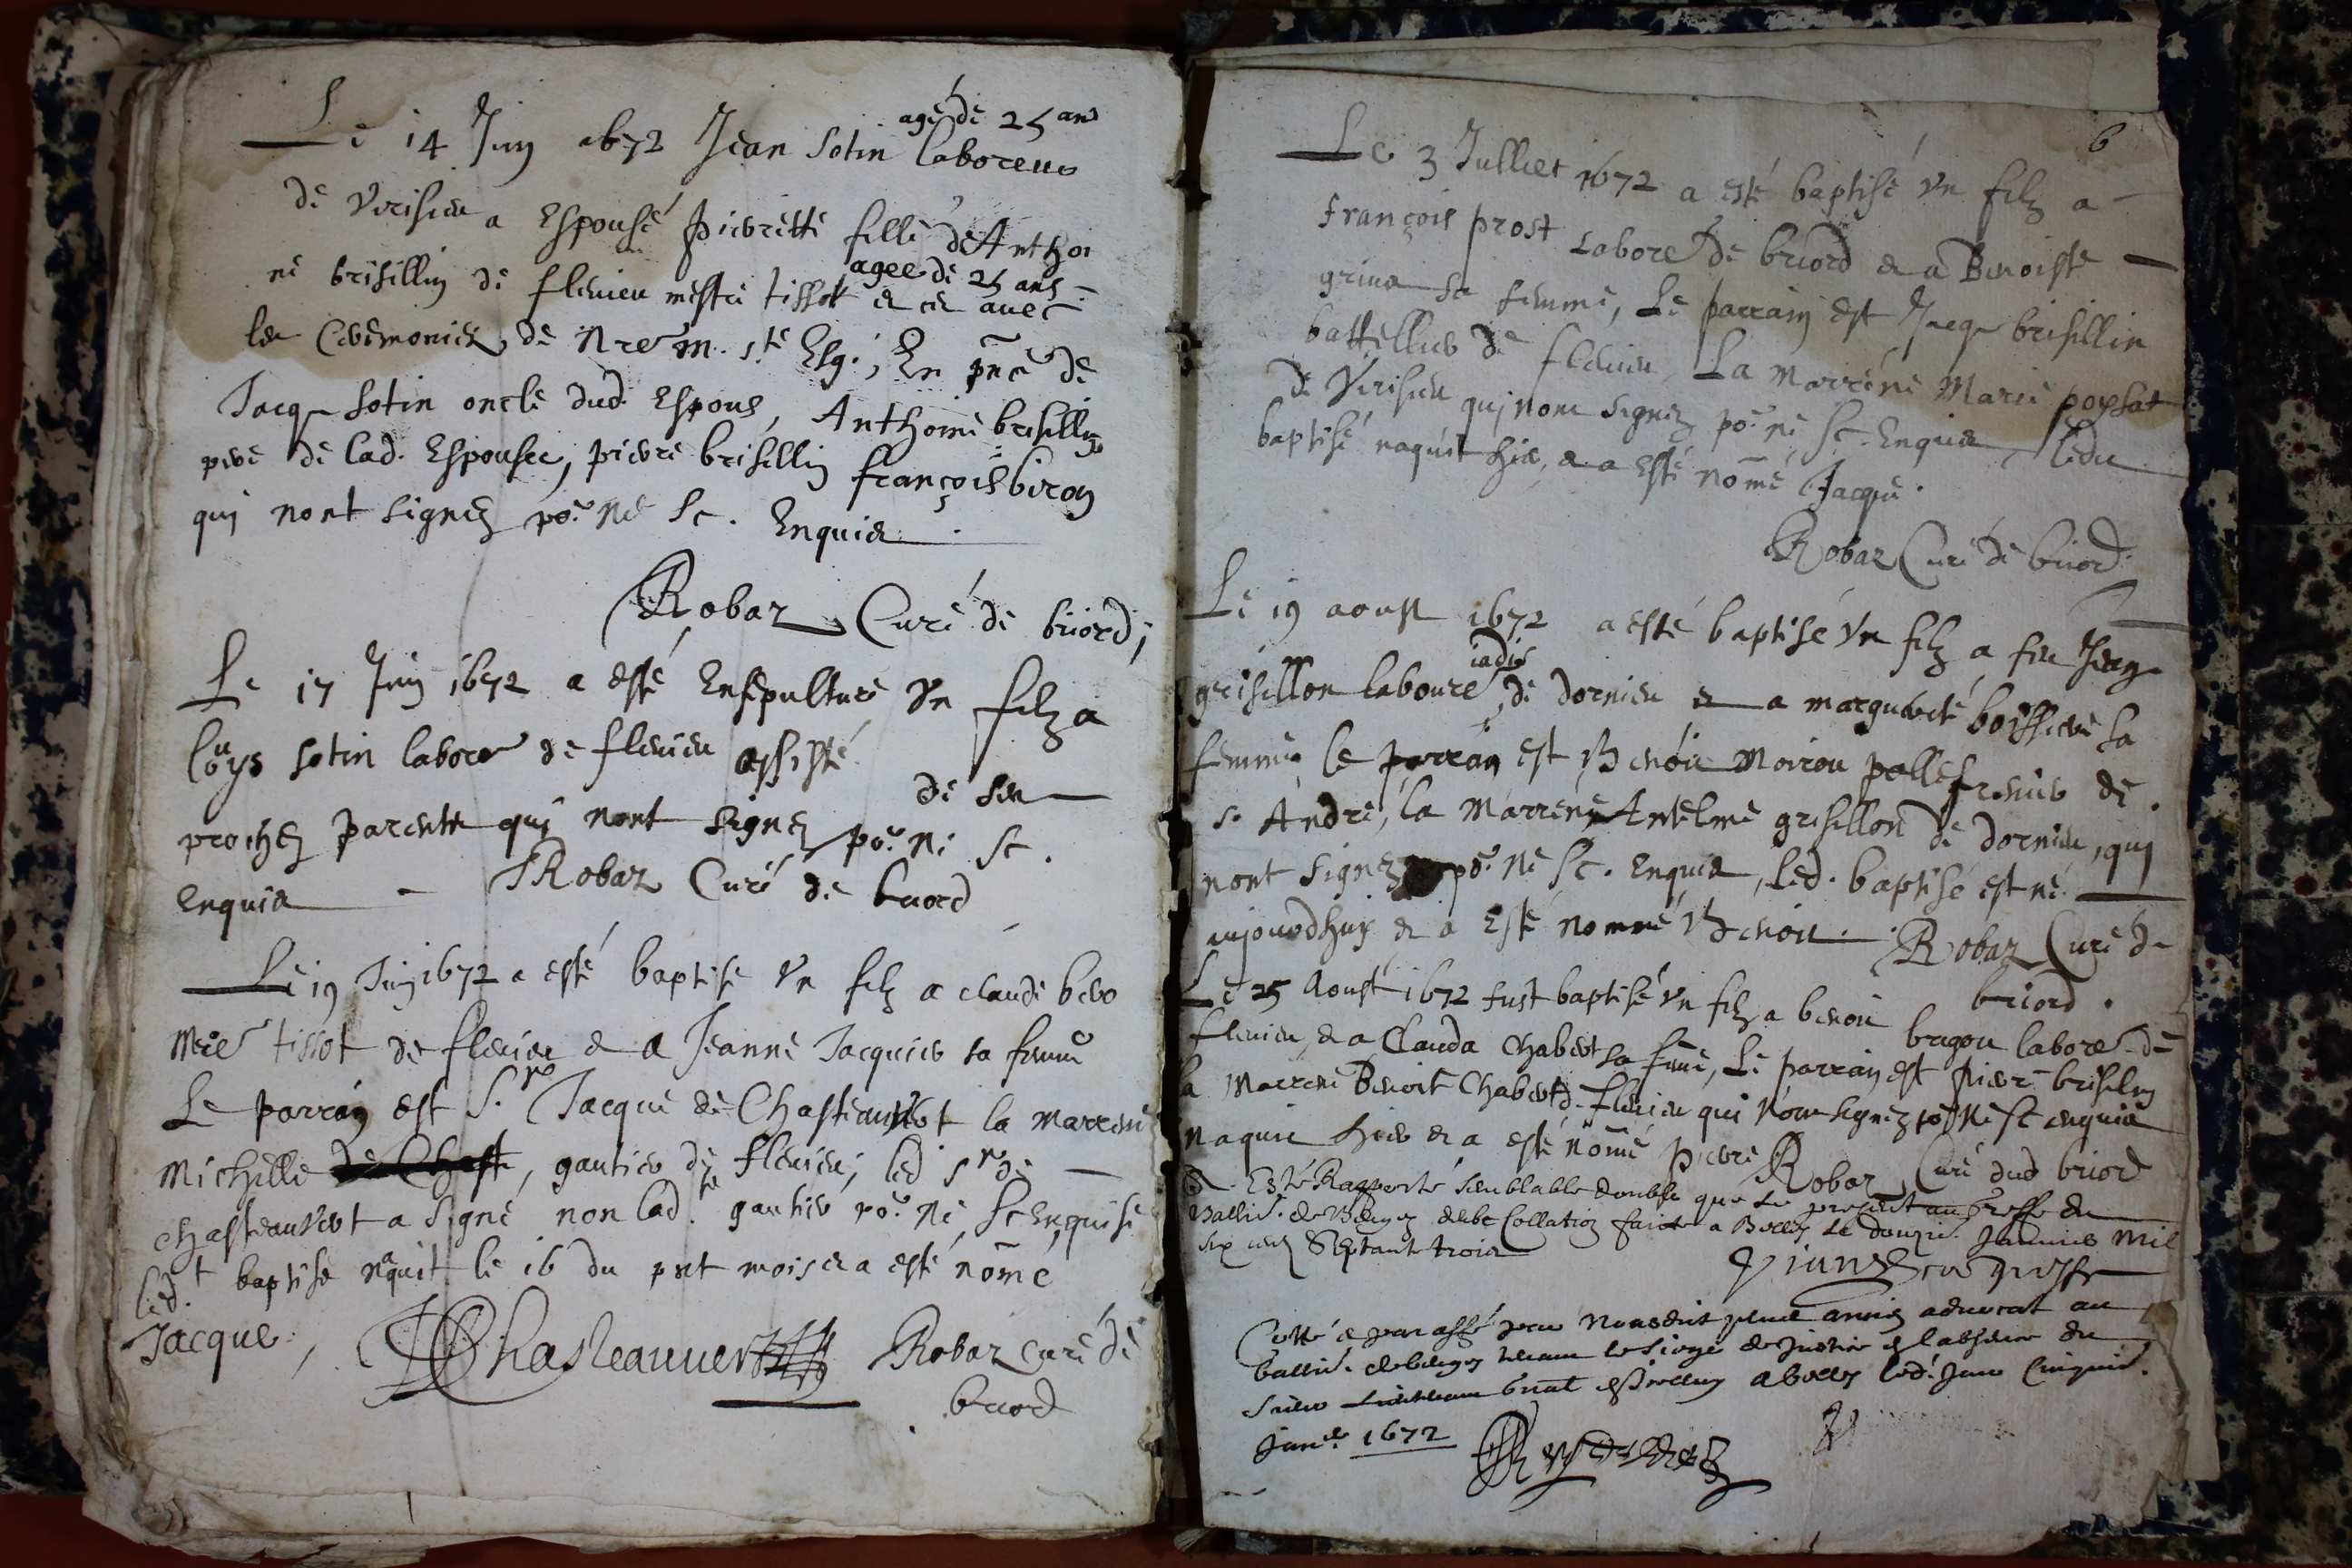 agé de 25 ans
Le 14 Juin 1672 Jean Sotin laboreur
de Virisieu a Espousé pierrette fille de Anthoi
agee de 25 ans
ne brisillin de flevieu mestre tissot & ce avec
les Ceremonies de Nre m. ste Esg., En pnce de
Jacq Sotin oncle dud. Espoux, Anthoine brisillin
pere de lad. Espousee, pierre brisillin françois biron
qui nont signez po.r ne sc. Enquis
Robaz Curé de briord
Le 17 Juin 1672 a esté Ensepulturé vn filz a
louys sotin labore.r de flevieu assisté de ses
proches parents qui nont signez po.r ne sc.
Enquis Robaz Curé de briord
Le 19 Juin 1672 a esté baptisé vn filz a claude
tissot de flevieu & a Jeanne Jacquier sa femme
Le parrain est S.r Jacque de Chasteauvert la marrene
Michelle de Chast, gautier de flevieu, led. sr de
chasteauvert a signé non lad.te gautier po.r ne sc Enquise
led.t baptisé naquit le 16 du pnt mois & a esté nõmé
Jacque.
JChasteauvert Robaz curé de
briord
6
Le 3 Julliet 1672 a esté baptisé vn filz a
françois prost labore.r de briord & a Benoiste
sa femme, Le parrain est Jacq brisillin
battellier de flevieu, La marrene Marie poysat
de Virisieu qui nont signez po.r ne sc. Enquis ledit
baptisé naquit hier, & a esté nõmé Jacque.
Robaz Curé de briord
Le 19 aoust 1672 a esté baptisé vn filz a feu Jean
iadis
grisillon laboure.r de dornieu & a marguerite boissiere sa
femme, le parrain est Benoit Moiron pallefrenier de
s. André, la Marrene Antelme grisillon de dornieu, qui
nont signez po.r ne sc. Enquis, led. baptisé est né
aujourdhuy & a Esté nommé Benoit. Robaz Curé de
briord.
Le 25 Aoust 1672 fust baptisé vn filz a benoit labore.r de
flevieu, & a Clauda Chabert sa feme, Le parrain est pierre brisilin
la Marrene Benoite Chabert de flevieu qui nont signez po.r ne sc enquis
naquit hier & a esté nõmé pierre Robaz Curé dud briord
Esté Rapporté semblable double que le present au greffe du
Balli.e de Bugey Collation faicte a Belley le douzie. Janvier Mil
six cens Septante trois
Cotté & paraffé par Nous advocat au
balli.e de bugey le siege de Justice & labsence du
sieur Lieutenant a belley led.
Janv. 1672